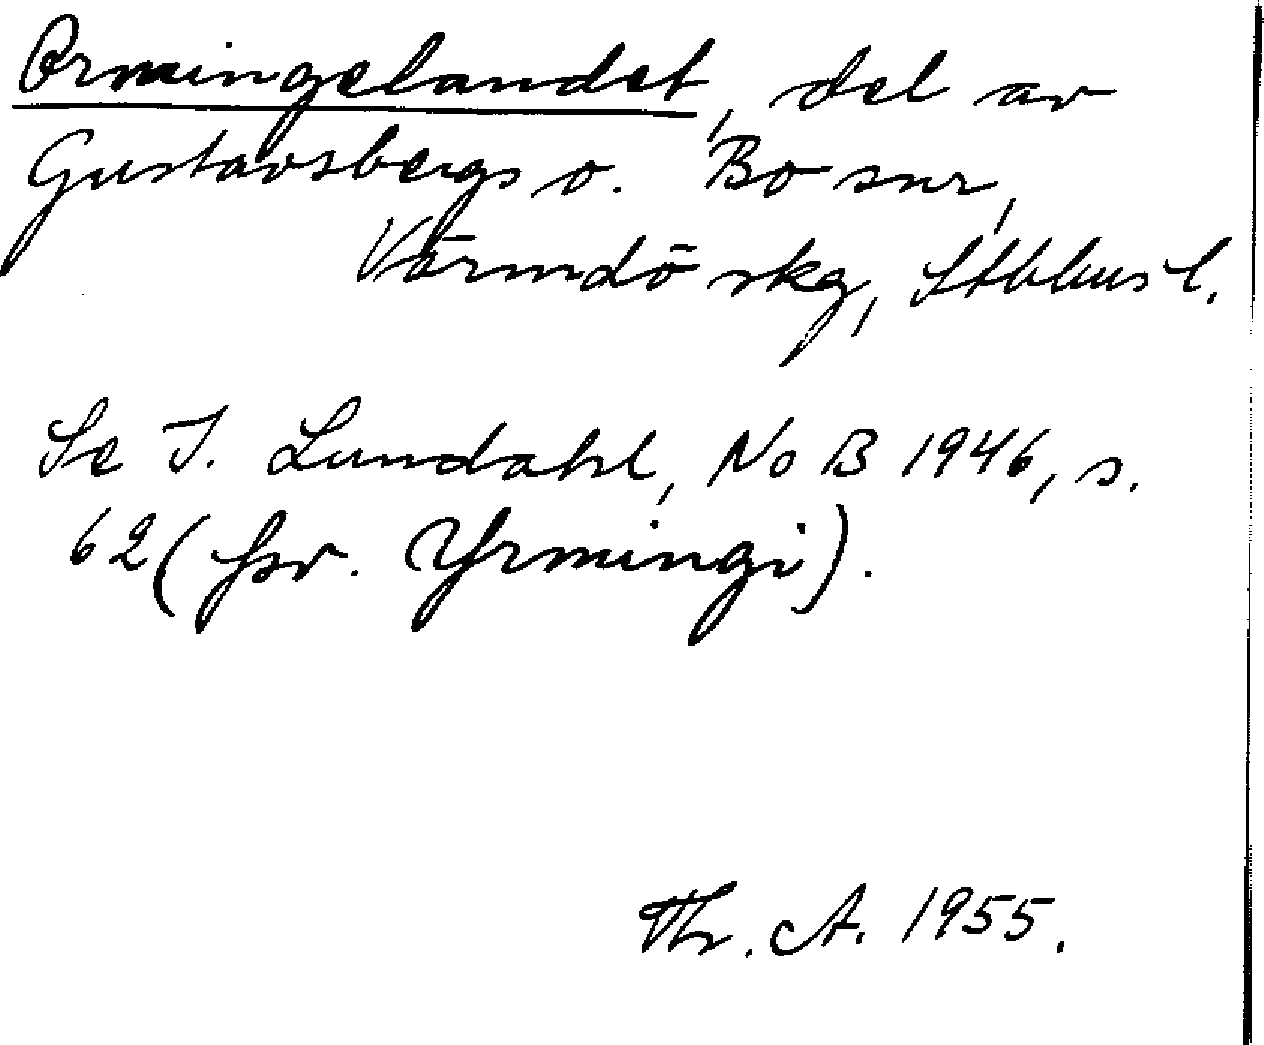 Ormingelandet, del av
Gustavsbergs o. Bo snr,
Värmdö skg, Sthlms l.
Se I. Lundahl, NoB 1946, s.
62 (fsv. Yrmingi).
Th. A. 1955.